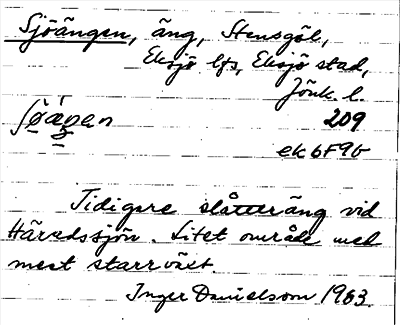 Sjöängen, äng, Stensgöl,
Eksjö lfs, Eksjö stad,
Jönk. l.
209
ek 6F9b
Tidigare slåtteräng vid
Häredssjön. Litet område med
mest starrväxt.
Inger Danielsson 1963.